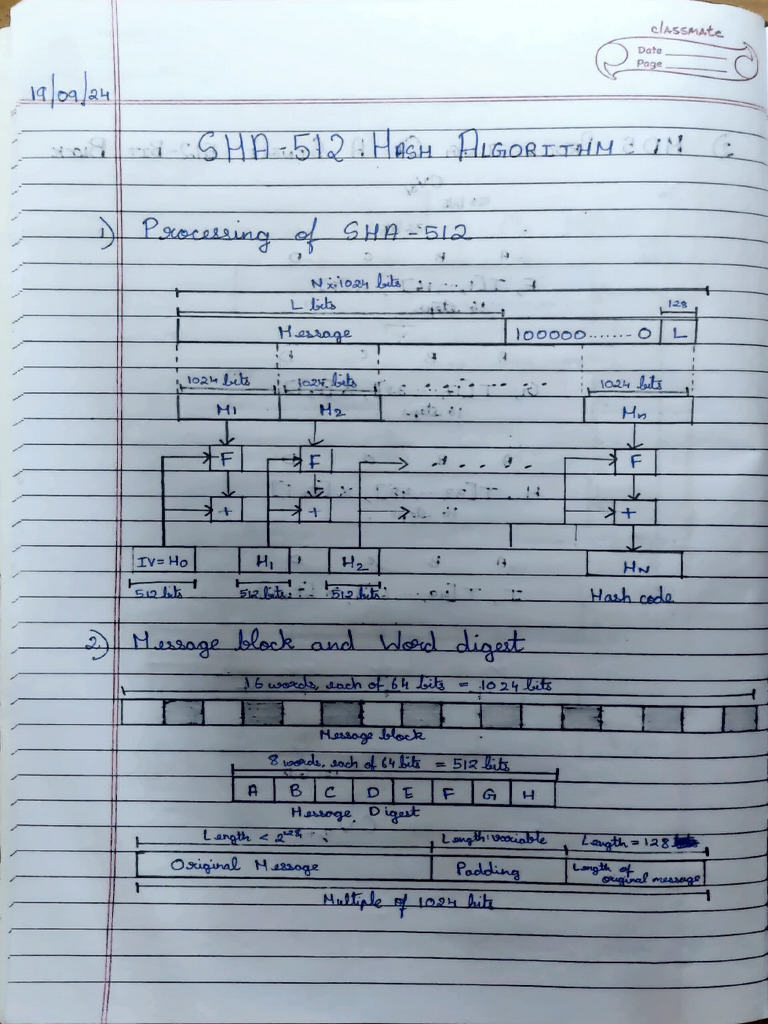 classmate
Date
Page
19/09/24
SHA-512 HASH ALGORITHM
1) Processing of SHA-512
N x 1024 bits
L bits
128
Message 100000.......0 L
1024 bits 1024 bits 1024 bits
M1 M2 Mn
F F F
+ + +
IV=H0 H1 H2 HN
512 bits 512 bits 512 bits Hash code
2) Message block and Word digest
16 words, each of 64 bits = 1024 bits
Message block
8 words, each of 64 bits = 512 bits
A B C D E F G H
Message Digest
Length < 2^128 Length:variable Length = 128
Original Message Padding Length of original message
Multiple of 1024 bits